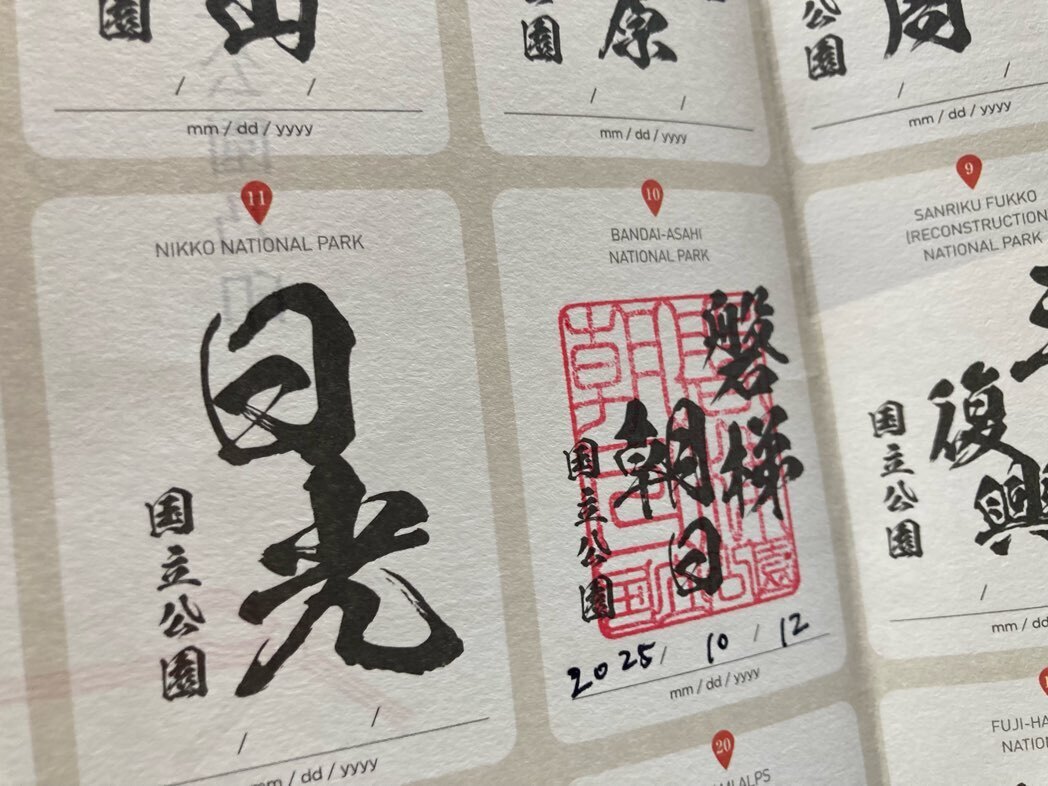 園
/ /
mm / dd / yyyy
園
原
/ /
mm / dd / yyyy
公園
/ /
mm / dd / yyyy
11
NIKKO NATIONAL PARK
日光
国立公園
/ /
mm / dd / yyyy
10
BANDAI-ASAHI
NATIONAL PARK
磐梯
朝日
国立公園
2025/ 10 / 12
mm / dd / yyyy
9
SANRIKU FUKKO
(RECONSTRUCTION
NATIONAL PARK
復興
国立公園
/
mm / dd
20
ALPS
FUJI-HA
NATIO